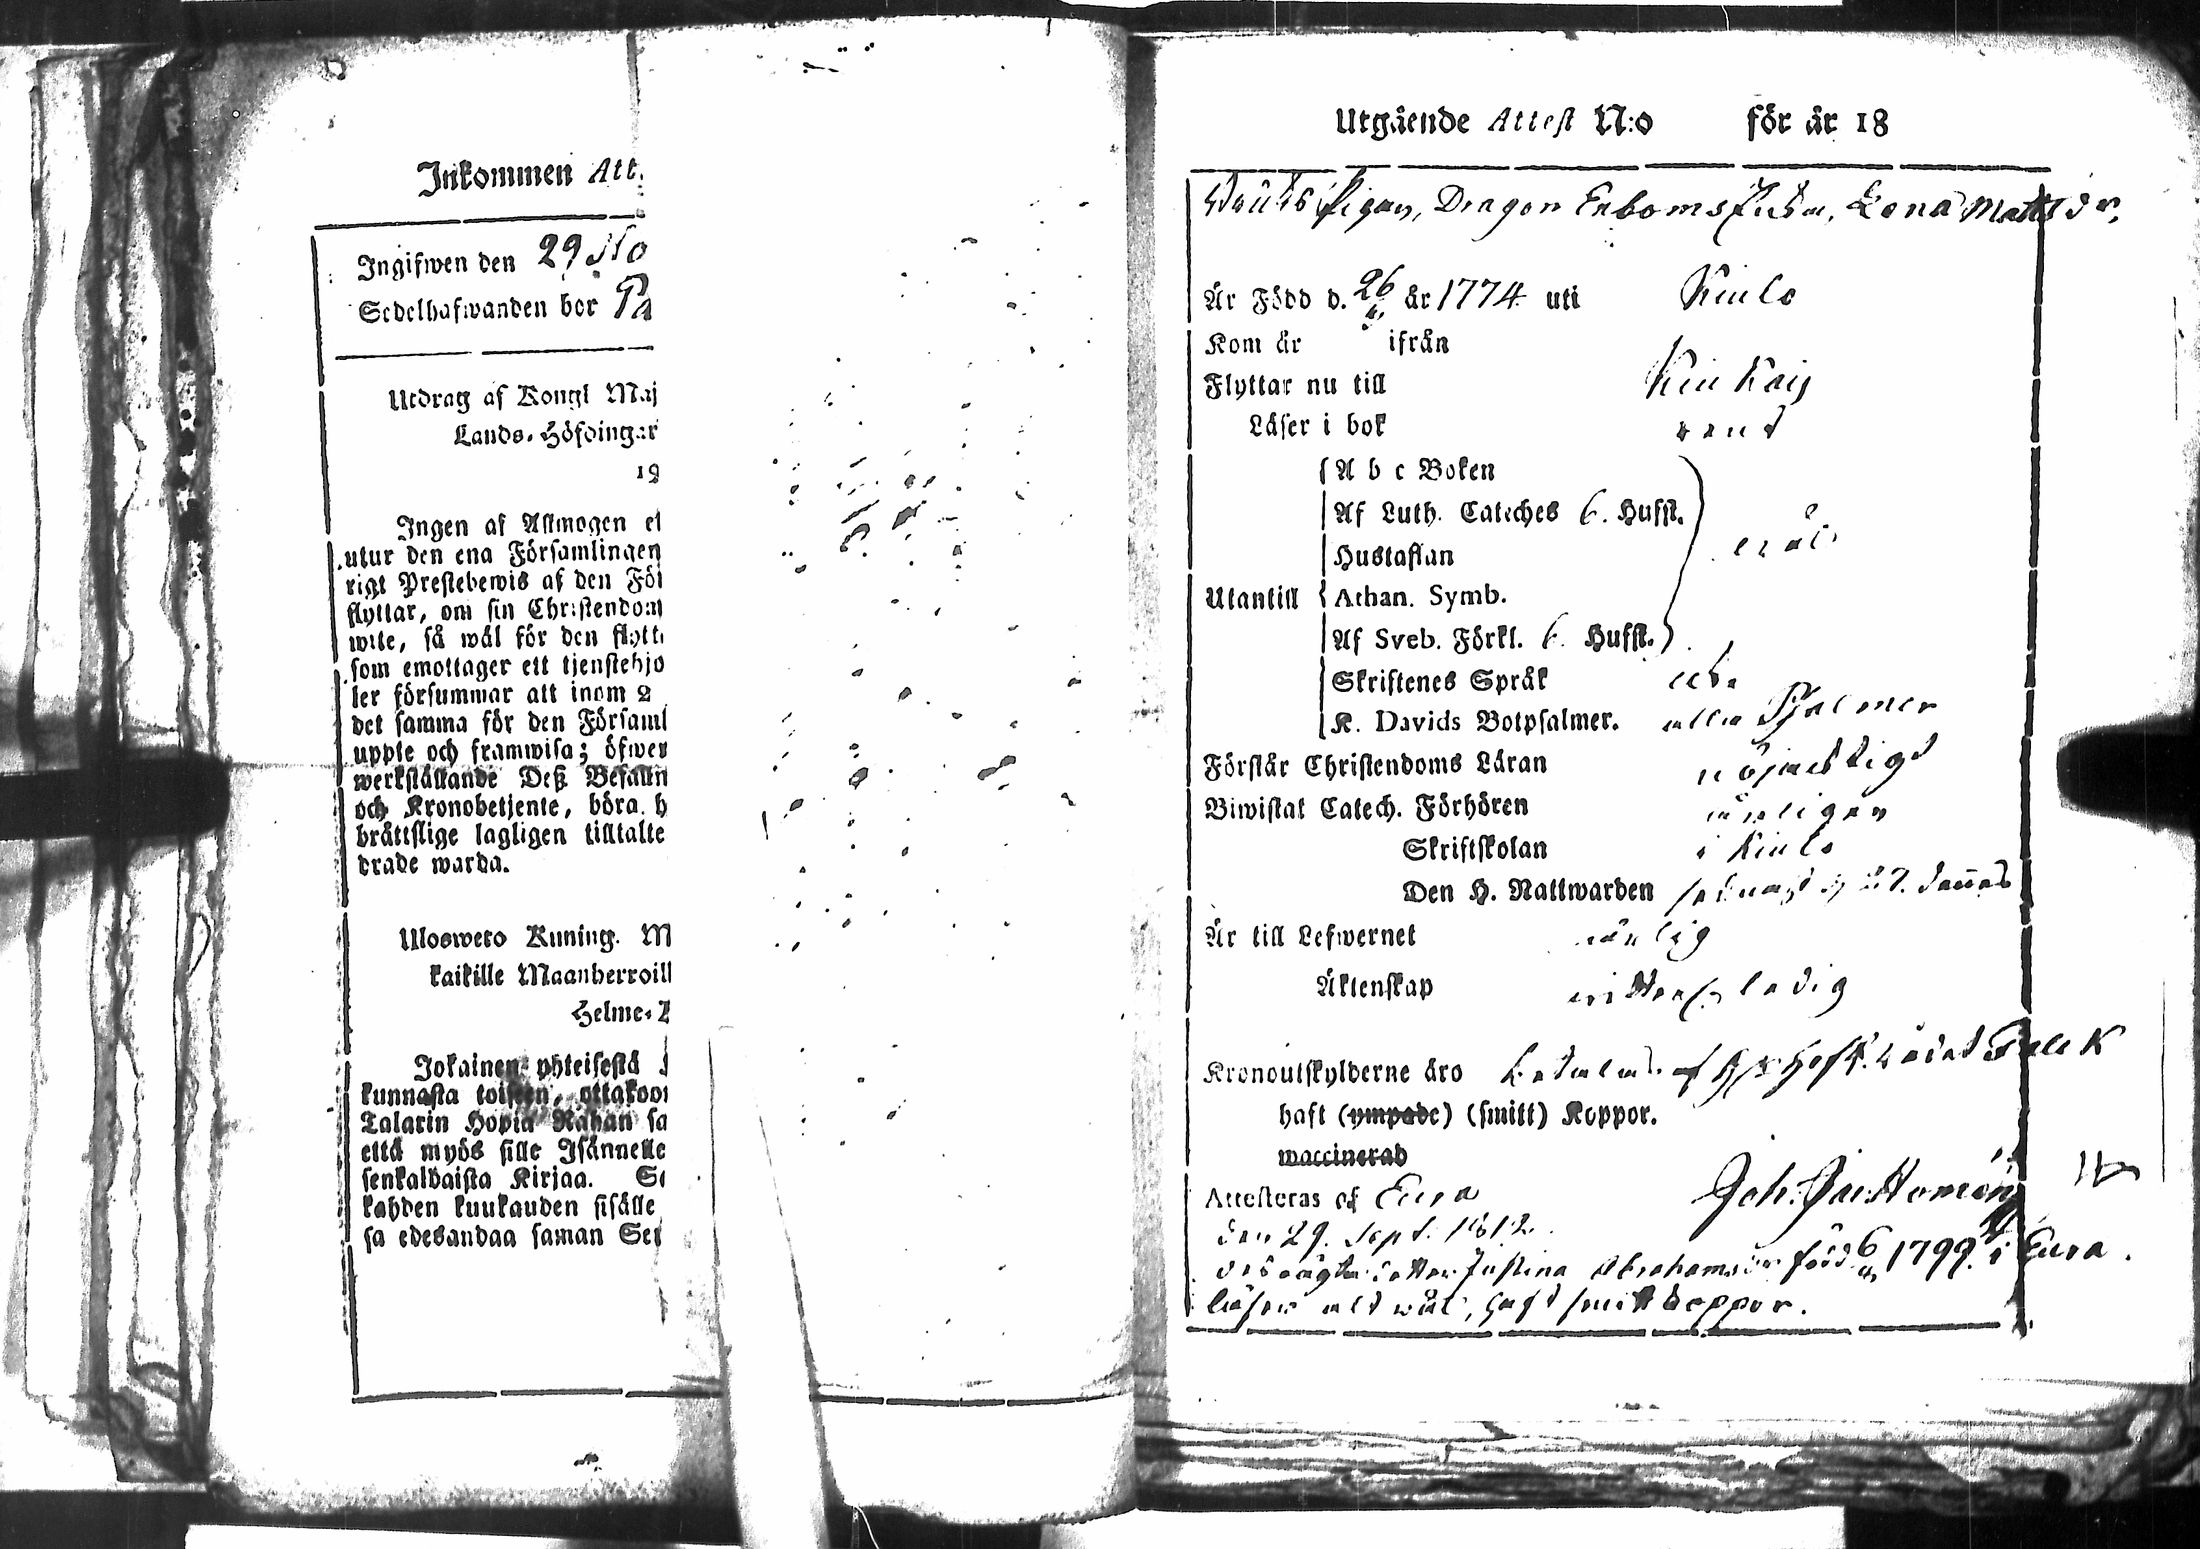 Inkommen Att.
Ingifwen den 29 No
Sedelhafwanden bor Pa
Utdrag af Kongl Maj
Lands-Höfdingar
19
Ingen af Allmogen el
utur den ena Församlingen
rigt Prestebewis af den För
flyttar, om sin Christendom
wite, så wäl för den flytt
som emottager ett tjenstehjo
ler försummar att inom 2
det samma för den Församl
uppte och framwisa; öfwer
werkställande Deß Befalln
och Kronobetjente, böra h
brättslige lagligen tilltalte
drade warda.
Uloswеto Kuning. M
kaikille Maanherroill
Helme-
Jokainen yhteisestä
kunnasta toiseen, ottakoon
Talarin Hopia Rahan sa
että myös sille Isännelle
senkaldaista Kirjaa. Se
kahden kuukauden sisälle
sa edesandaa saman Se
Utgående Attest N:o för år 18
Pigan, Dragon Enboms Lena Matts dr,
Är Född d. 26 år 1774 uti Kiulo
Kom år ifrån
Flyttar nu till Kiukais
Läser i bok rent
A b c Boken
Af Luth. Cateches 6. Hufst.
Hustaflan
Utantill Athan. Symb.
Af Sveb. Förkl. 6. Hufst.
Skriftenes Språk
K. Davids Botpsalmer. alla Psalmer
Förstår Christendoms Läran nöjaktigt
Biwistat Catech. Förhören årligen
Skriftskolan i Kiulo
Den H. Nattwarden sednast d 27. dennes
Är till Lefwernet ärlig
Äktenskap ledig
Kronoutskylderne äro betalade af
haft (ympade) (smitt) Koppor.
waccinerad
Attesteras af Eura Joh.
den 29. Sept. 1812.
dotter Justina Abrahamsdr född 6 1799 i Eura.
läser alt wäl, haft smitt koppor.